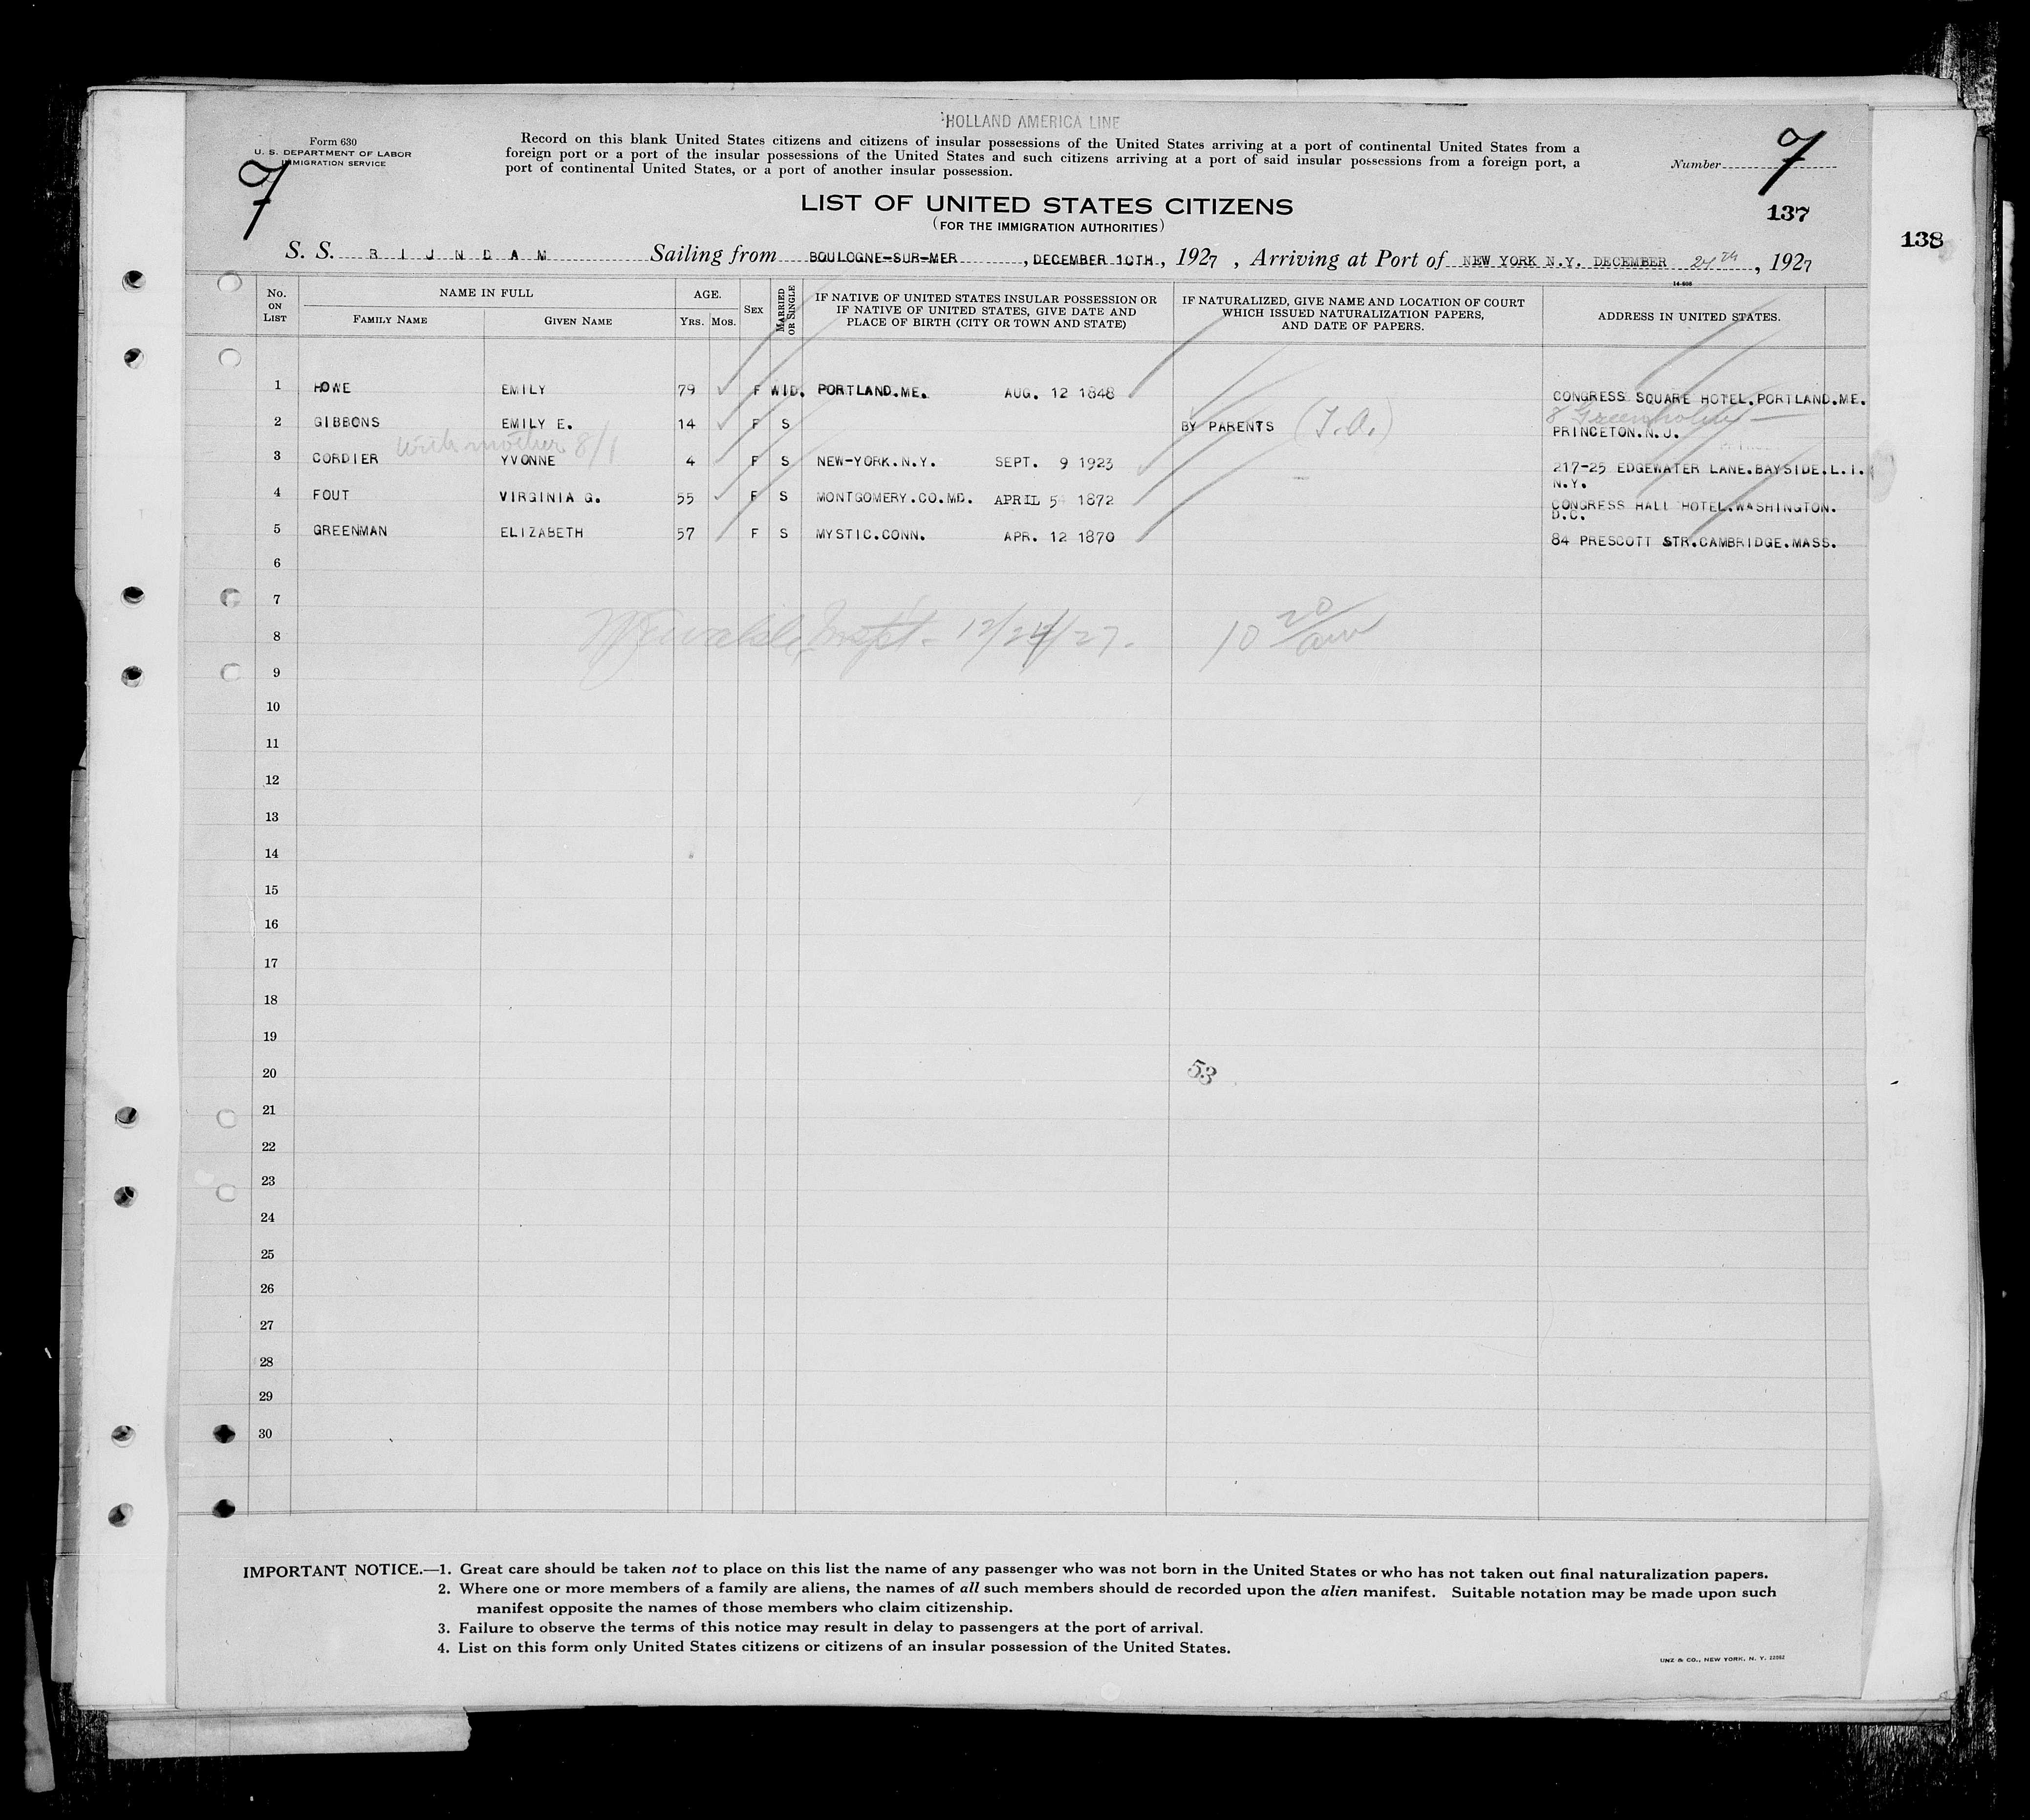 HOLLAND AMERICA LINE
Form 630
U. S. DEPARTMENT OF LABOR
IMMIGRATION SERVICE
7
Record on this blank United States citizens and citizens of insular possessions of the United States arriving at a port of continental United States from a
foreign port or a port of the insular possessions of the United States and such citizens arriving at a port of said insular possessions from a foreign port, a
port of continental United States, or a port of another insular possession.
Number 7
LIST OF UNITED STATES CITIZENS
(FOR THE IMMIGRATION AUTHORITIES)
137
138
S. S. RIJNDAM Sailing from BOULOGNE-SUR-MER, DECEMBER 10TH, 1927, Arriving at Port of NEW YORK N.Y. DECEMBER 24th, 1927
14-808
No. ON LIST NAME IN FULL FAMILY NAME GIVEN NAME AGE. YRS. MOS. SEX MARRIED OR SINGLE IF NATIVE OF UNITED STATES INSULAR POSSESSION OR IF NATIVE OF UNITED STATES, GIVE DATE AND PLACE OF BIRTH (CITY OR TOWN AND STATE) IF NATURALIZED, GIVE NAME AND LOCATION OF COURT WHICH ISSUED NATURALIZATION PAPERS, AND DATE OF PAPERS. ADDRESS IN UNITED STATES.
1 HOWE EMILY 79 F WID. PORTLAND.ME. AUG. 12 1848 CONGRESS SQUARE HOTEL.PORTLAND.ME.
2 GIBBONS EMILY E. 14 F S BY PARENTS (T.A.) 8 Greenholm PRINCETON.N.J.
with mother 8/1
3 CORDIER YVONNE 4 F S NEW-YORK.N.Y. SEPT. 9 1923 217-25 EDGEWATER LANE.BAYSIDE.L.I.
N.Y.
4 FOUT VIRGINIA G. 55 F S MONTGOMERY.CO.MD. APRIL 5 1872 CONGRESS HALL HOTEL.WASHINGTON.
D.C.
5 GREENMAN ELIZABETH 57 F S MYSTIC.CONN. APR. 12 1870 84 PRESCOTT STR.CAMBRIDGE.MASS.
6
7
8 Inspt. 12/24/27. 10 20/am
9
10
11
12
13
14
15
16
17
18
19
20 53
21
22
23
24
25
26
27
28
29
30
IMPORTANT NOTICE.—1. Great care should be taken not to place on this list the name of any passenger who was not born in the United States or who has not taken out final naturalization papers.
2. Where one or more members of a family are aliens, the names of all such members should de recorded upon the alien manifest. Suitable notation may be made upon such
manifest opposite the names of those members who claim citizenship.
3. Failure to observe the terms of this notice may result in delay to passengers at the port of arrival.
4. List on this form only United States citizens or citizens of an insular possession of the United States.
UNZ & CO., NEW YORK, N. Y. 22562